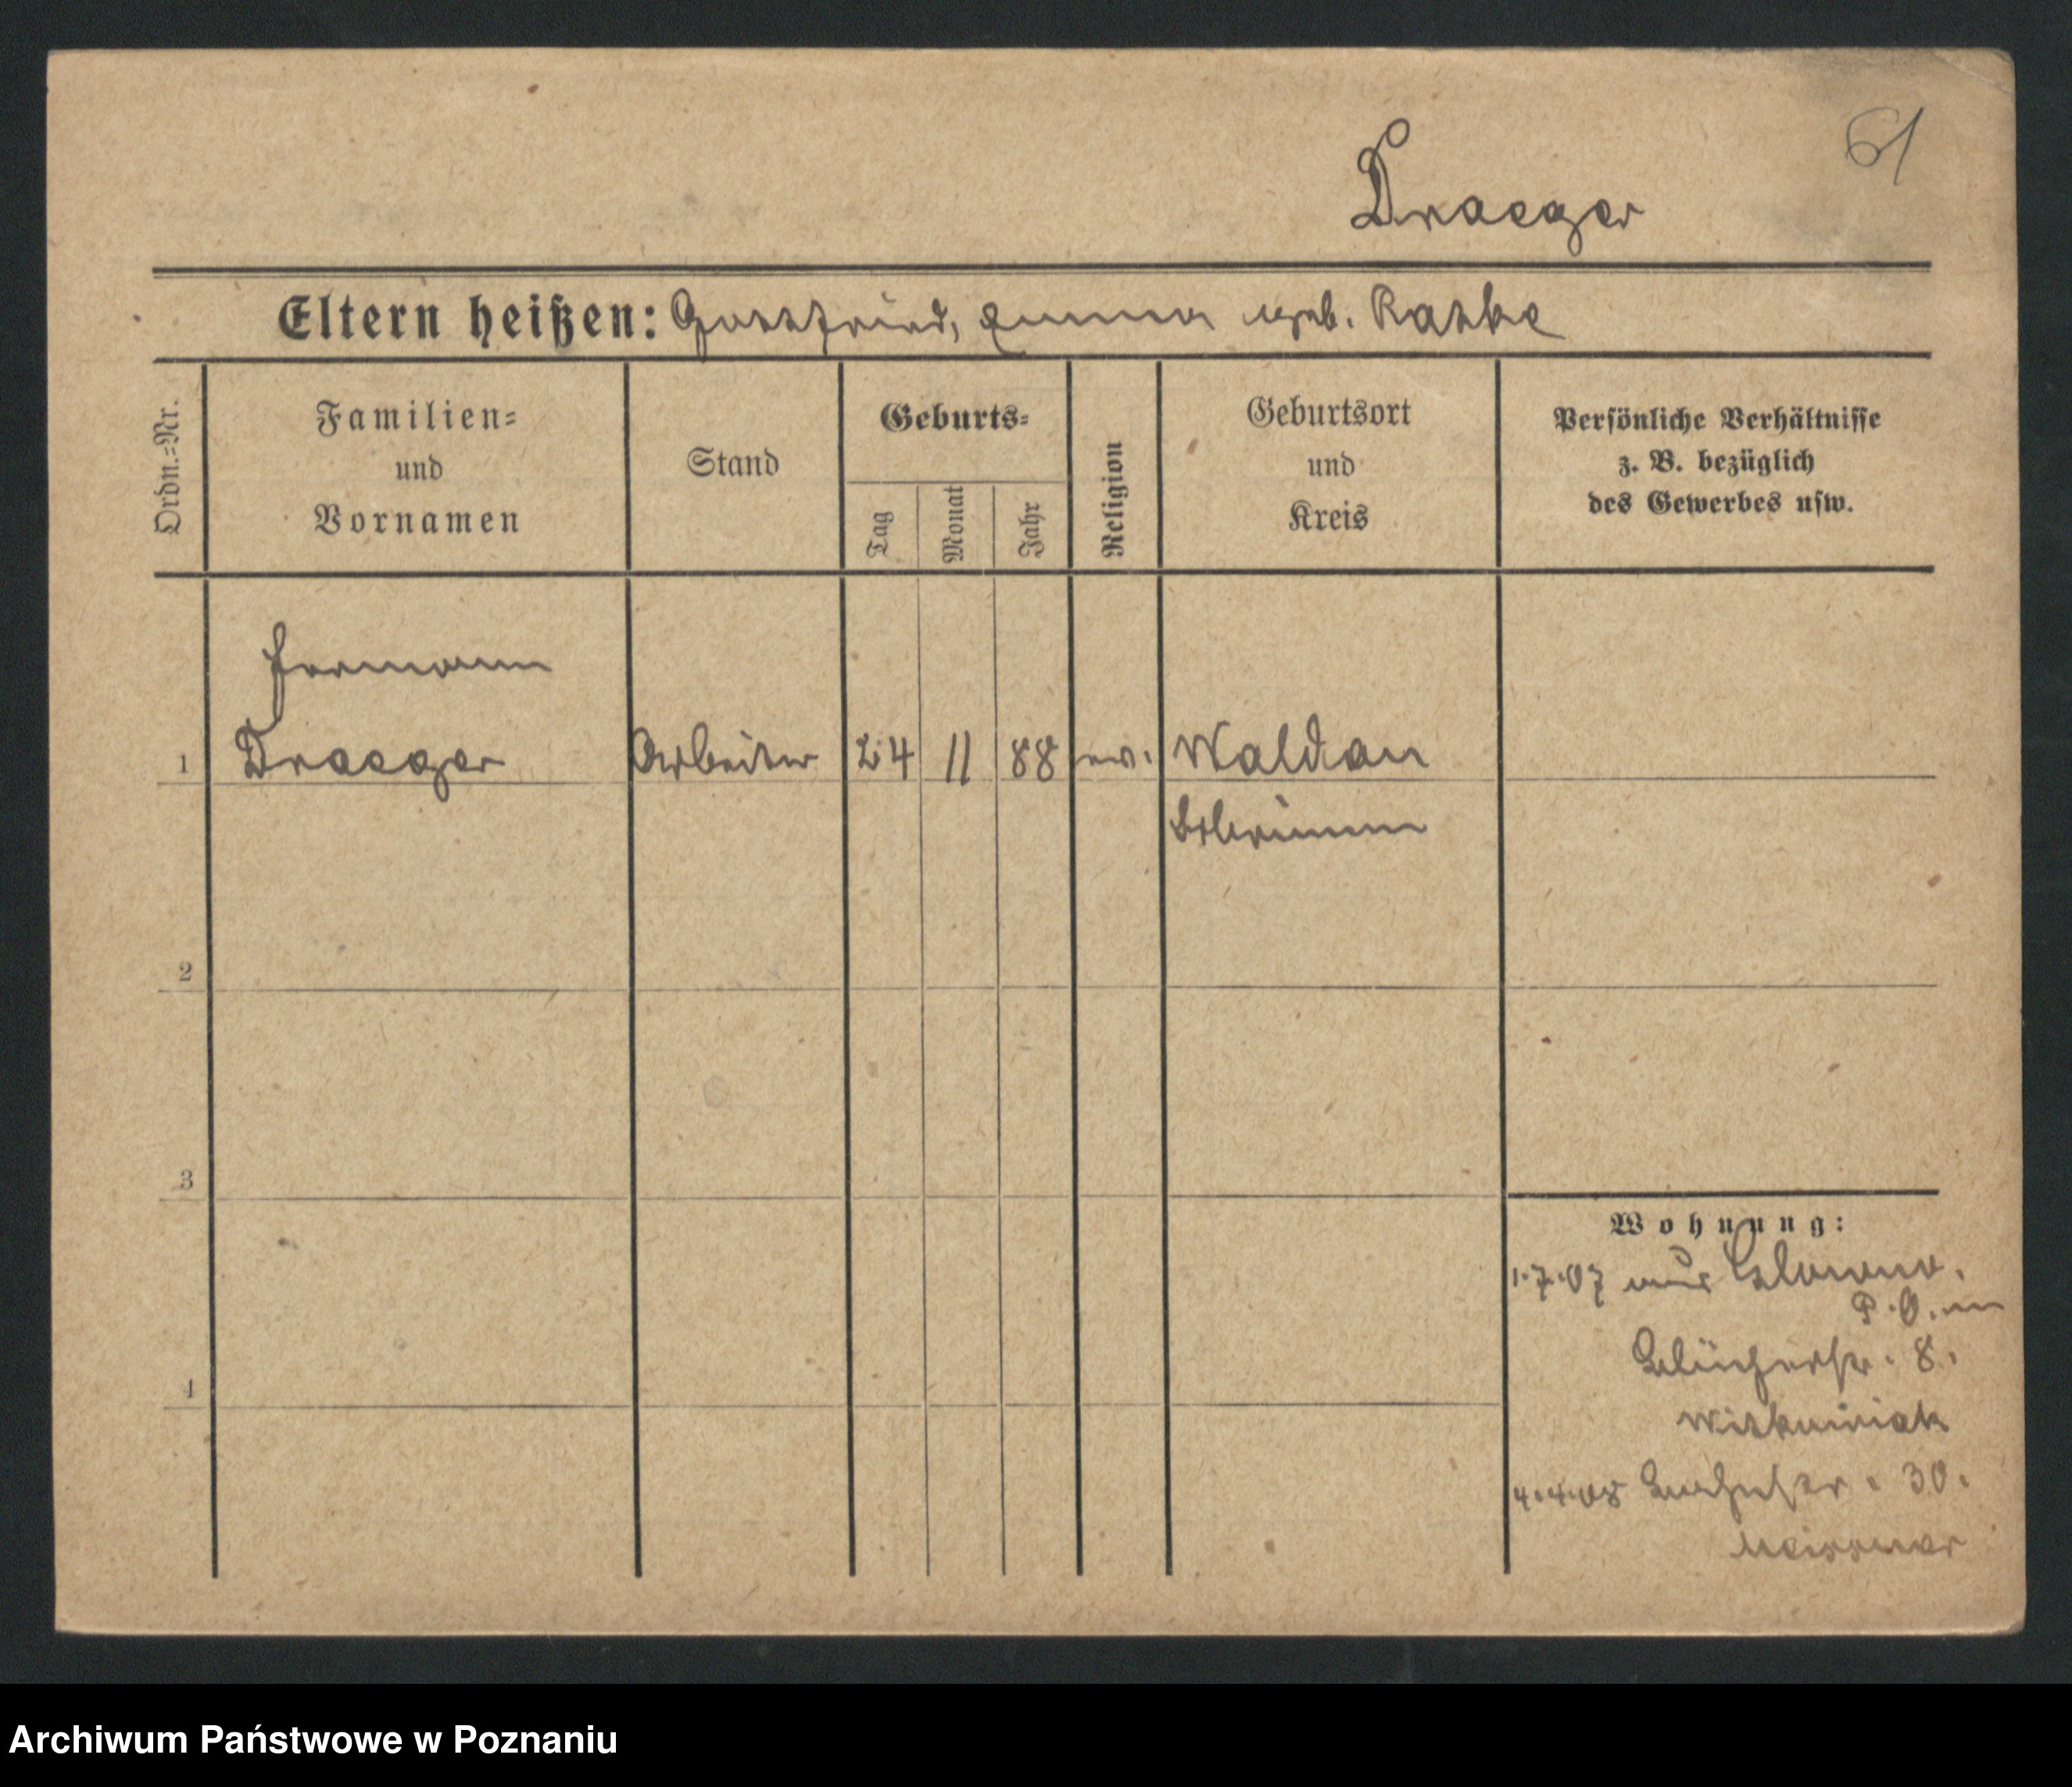 61
Draeger
Eltern heißen: Gottfried, Emma geb. Ratzke
Ordn.-Nr.
Familien- und Vornamen
Stand
Geburts-
Tag
Monat
Jahr
Religion
Geburtsort und Kreis
Persönliche Verhältnisse
z. B. bezüglich
des Gewerbes usw.
Hermann
1 Draeger Arbeiter 24 11 88 ev. Waldau
Schrimm
2
3
4
Wohnung:
1.7.07 aus
P. O. in
Blücherstr. 8.
4.4.08 30.
Meissner
Archiwum Państwowe w Poznaniu